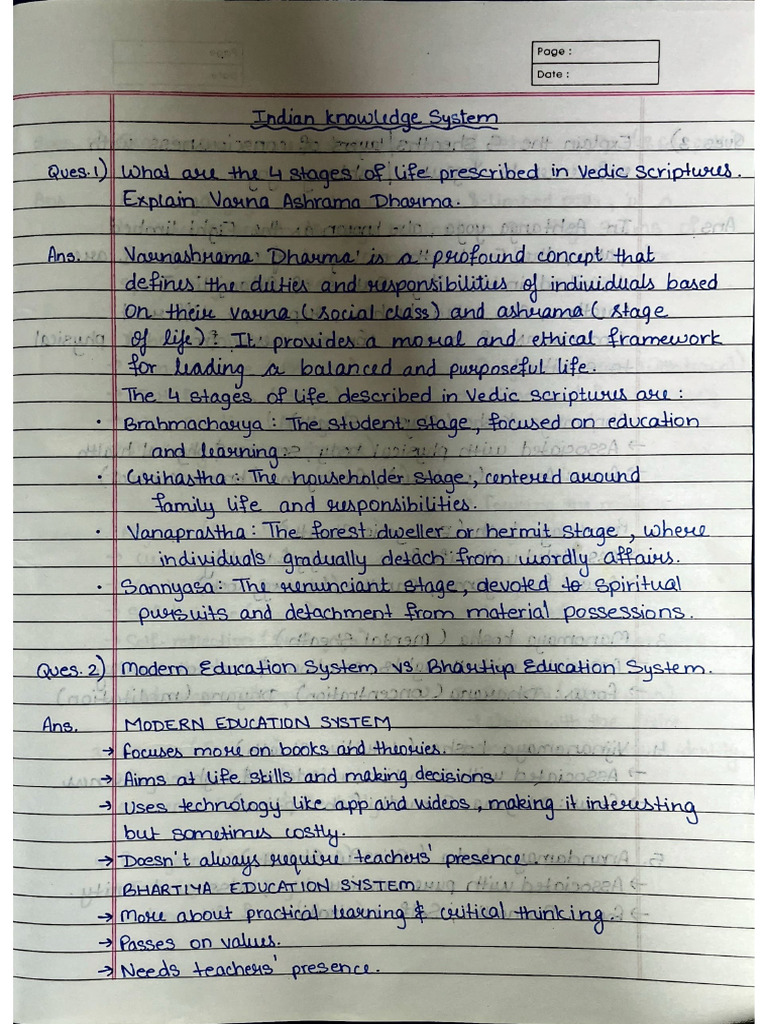 Page :
Date :
Indian Knowledge System
Ques. 1) What are the 4 stages of life prescribed in Vedic Scriptures.
Explain Varna Ashrama Dharma.
Ans. Varnashrama Dharma is a profound concept that
defines the duties and responsibilities of individuals based
on their varna (social class) and ashrama (stage
of life). It provides a moral and ethical framework
for leading a balanced and purposeful life.
The 4 stages of life described in Vedic Scriptures are :
• Brahmacharya : The student stage, focused on education
and learning.
• Grihastha : The householder stage, centered around
family life and responsibilities.
• Vanaprastha : The forest dweller or hermit stage, where
individuals gradually detach from wordly affairs.
• Sannyasa : The renunciant stage, devoted to spiritual
pursuits and detachment from material possessions.
Ques. 2) Modern Education System vs Bhartiya Education System.
Ans. MODERN EDUCATION SYSTEM
→ Focuses more on books and theories.
→ Aims at life skills and making decisions
→ Uses technology like app and videos, making it interesting
but sometimes costly.
→ Doesn't always require teachers' presence.
BHARTIYA EDUCATION SYSTEM
→ More about practical learning & critical thinking.
→ Passes on values.
→ Needs teachers' presence.